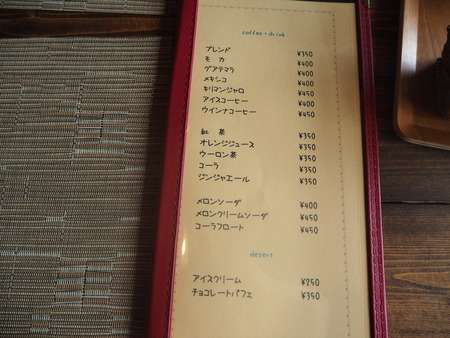 coffee・drink
ブレンド ¥350
モカ ¥400
グアテマラ ¥400
メキシコ ¥400
キリマンジャロ ¥450
アイスコーヒー ¥400
ウインナコーヒー ¥450
紅茶 ¥350
オレンジジュース ¥350
ウーロン茶 ¥350
コーラ ¥350
ジンジャエール ¥350
メロンソーダ ¥400
メロンクリームソーダ ¥450
コーラフロート ¥450
dezert
アイスクリーム ¥250
チョコレートパフェ ¥350